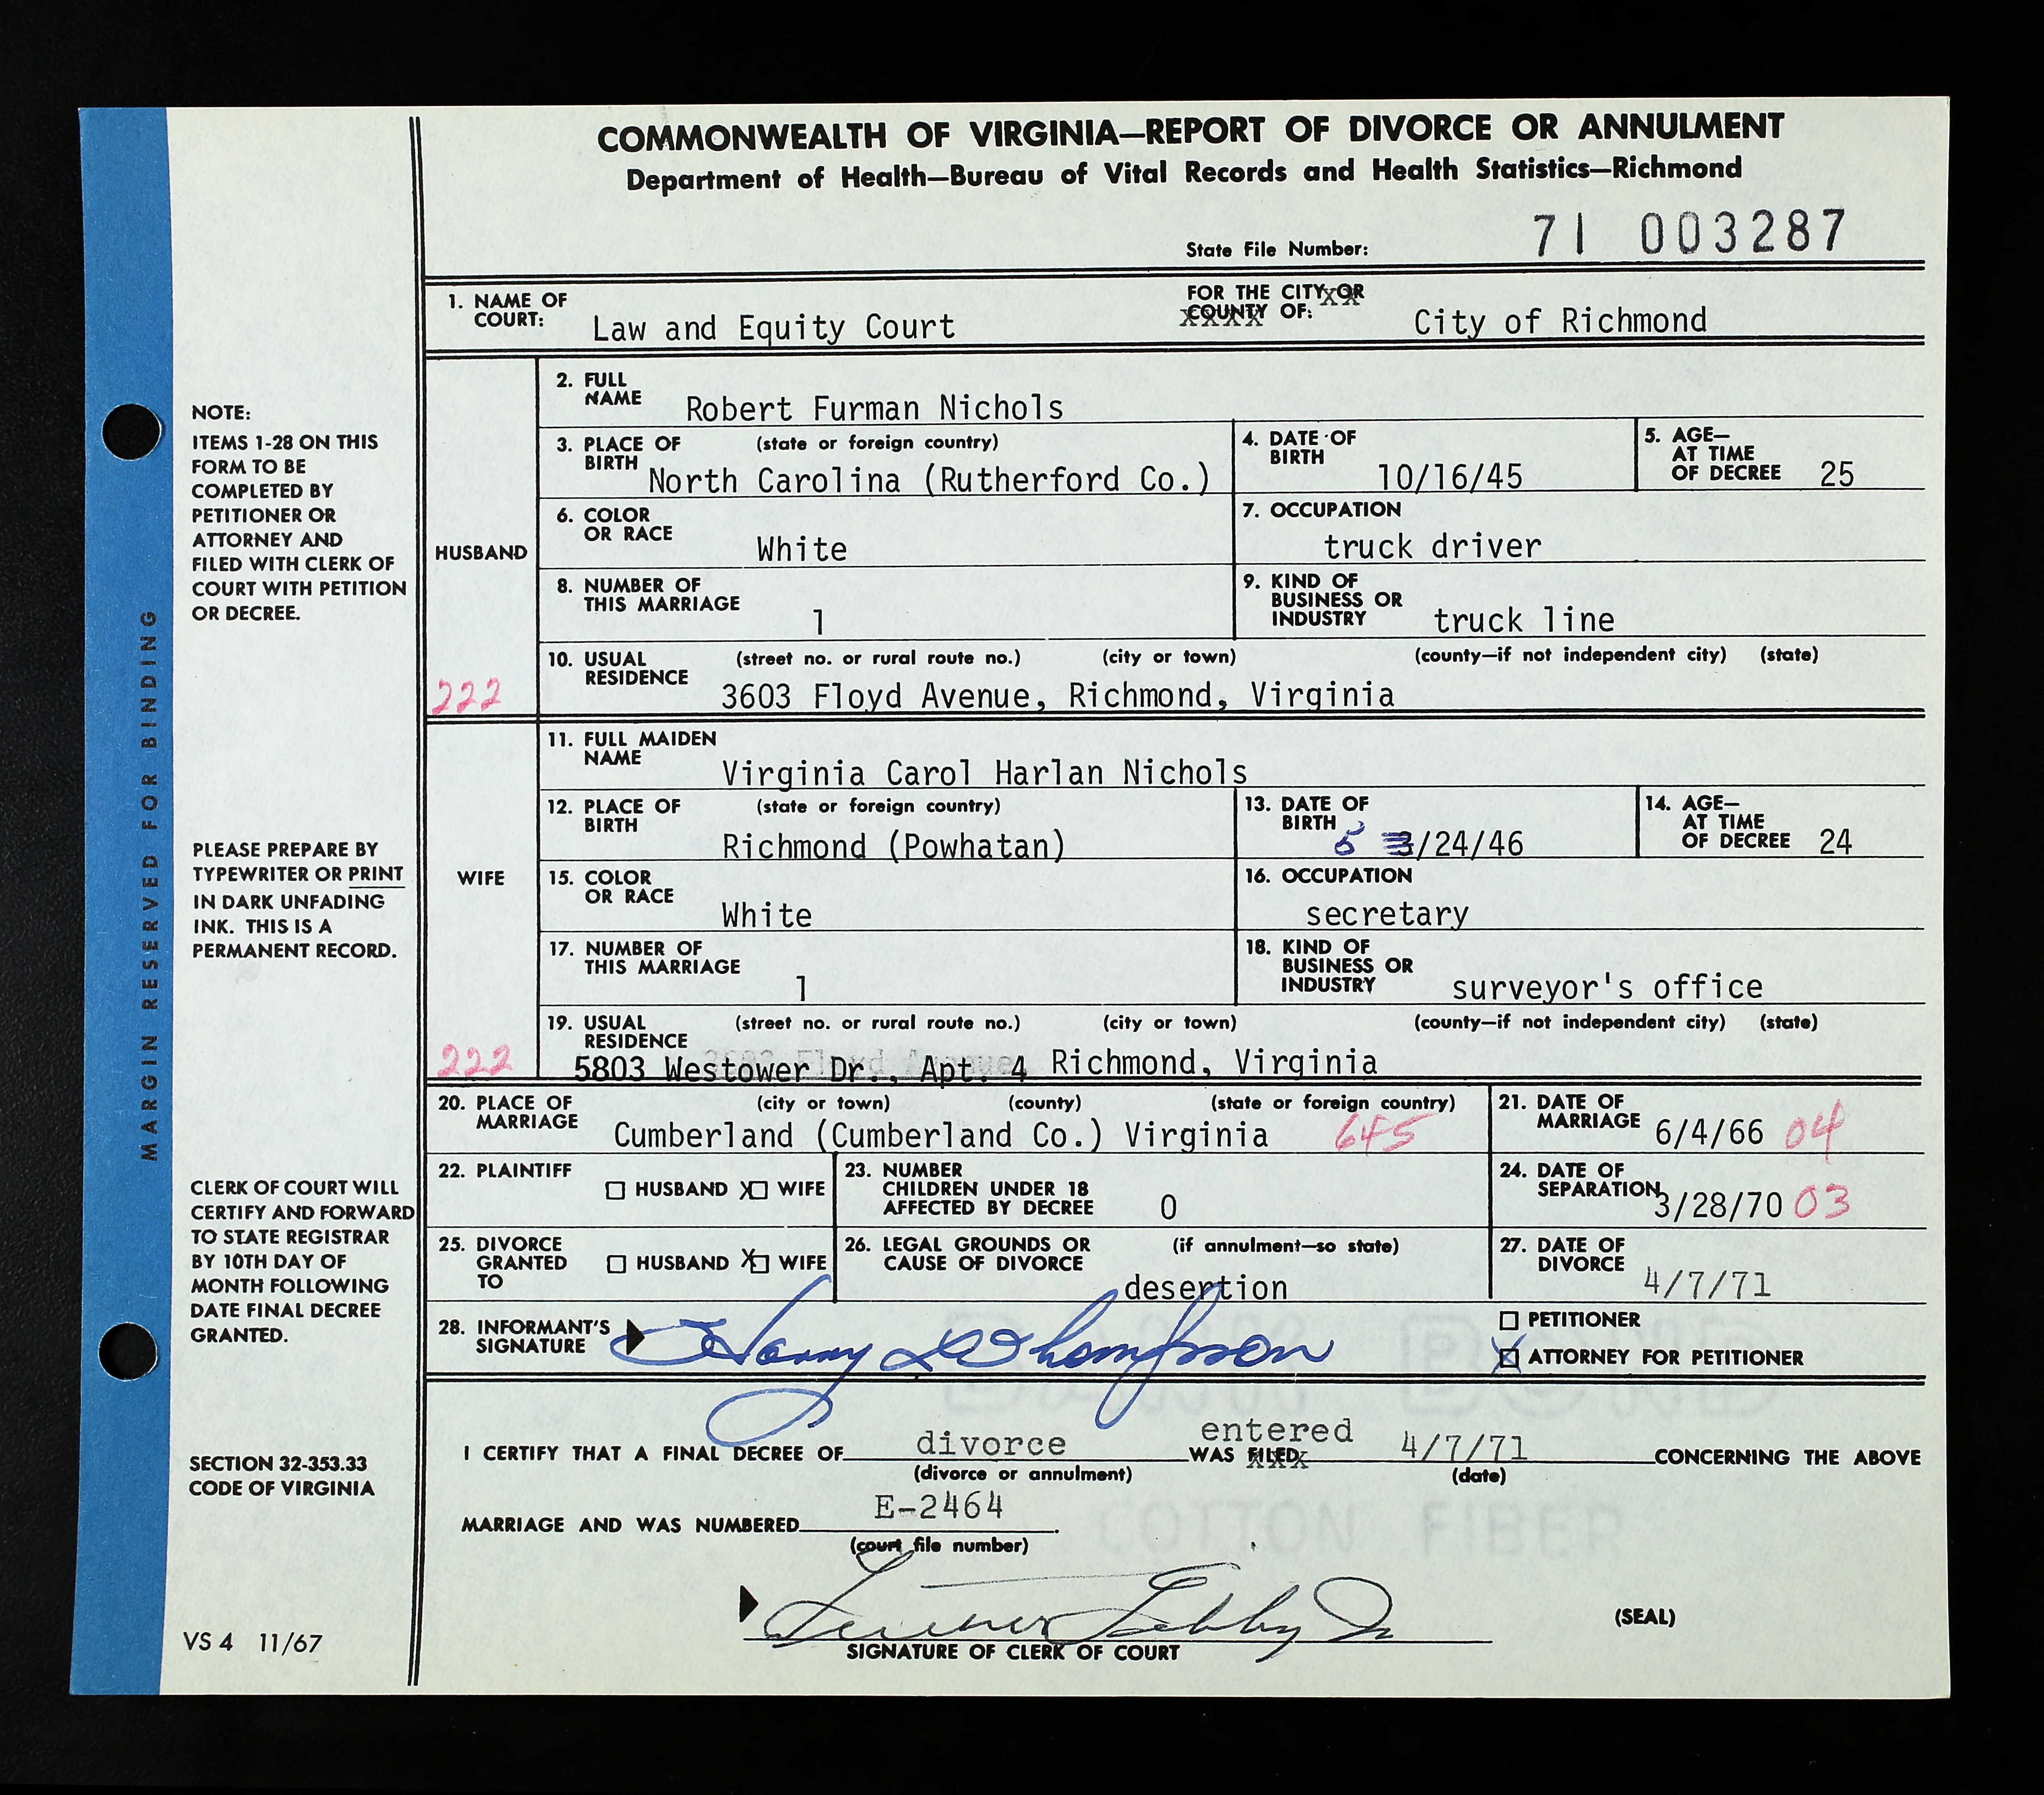 COMMONWEALTH OF VIRGINIA—REPORT OF DIVORCE OR ANNULMENT
Department of Health—Bureau of Vital Records and Health Statistics—Richmond
State File Number: 71 003287
1. NAME OF COURT: Law and Equity Court FOR THE CITY OR COUNTY OF: City of Richmond
HUSBAND
2. FULL NAME Robert Furman Nichols
3. PLACE OF BIRTH (state or foreign country) North Carolina (Rutherford Co.)
4. DATE OF BIRTH 10/16/45
5. AGE— AT TIME OF DECREE 25
6. COLOR OR RACE White
7. OCCUPATION truck driver
8. NUMBER OF THIS MARRIAGE 1
9. KIND OF BUSINESS OR INDUSTRY truck line
10. USUAL RESIDENCE (street no. or rural route no.) (city or town) (county—if not independent city) (state)
222 3603 Floyd Avenue, Richmond, Virginia
WIFE
11. FULL MAIDEN NAME Virginia Carol Harlan Nichols
12. PLACE OF BIRTH (state or foreign country) Richmond (Powhatan)
13. DATE OF BIRTH 5 3/24/46
14. AGE— AT TIME OF DECREE 24
15. COLOR OR RACE White
16. OCCUPATION secretary
17. NUMBER OF THIS MARRIAGE 1
18. KIND OF BUSINESS OR INDUSTRY surveyor's office
19. USUAL RESIDENCE (street no. or rural route no.) (city or town) (county—if not independent city) (state)
222 5803 Westower Dr., Apt. 4 Richmond, Virginia
20. PLACE OF MARRIAGE (city or town) (county) (state or foreign country)
Cumberland (Cumberland Co.) Virginia 645
21. DATE OF MARRIAGE 6/4/66 04
22. PLAINTIFF ☐ HUSBAND X☐ WIFE
23. NUMBER CHILDREN UNDER 18 AFFECTED BY DECREE 0
24. DATE OF SEPARATION 3/28/70 03
25. DIVORCE GRANTED TO ☐ HUSBAND X☐ WIFE
26. LEGAL GROUNDS OR CAUSE OF DIVORCE (if annulment—so state) desertion
27. DATE OF DIVORCE 4/7/71
28. INFORMANT'S SIGNATURE Harry L Thompson
☐ PETITIONER
☒ ATTORNEY FOR PETITIONER
I CERTIFY THAT A FINAL DECREE OF divorce WAS FILED entered 4/7/71 CONCERNING THE ABOVE
(divorce or annulment) (date)
MARRIAGE AND WAS NUMBERED E-2464
(court file number)
SIGNATURE OF CLERK OF COURT
(SEAL)
MARGIN RESERVED FOR BINDING
NOTE:
ITEMS 1-28 ON THIS
FORM TO BE
COMPLETED BY
PETITIONER OR
ATTORNEY AND
FILED WITH CLERK OF
COURT WITH PETITION
OR DECREE.
PLEASE PREPARE BY
TYPEWRITER OR PRINT
IN DARK UNFADING
INK. THIS IS A
PERMANENT RECORD.
CLERK OF COURT WILL
CERTIFY AND FORWARD
TO STATE REGISTRAR
BY 10TH DAY OF
MONTH FOLLOWING
DATE FINAL DECREE
GRANTED.
SECTION 32-353.33
CODE OF VIRGINIA
VS 4 11/67
COTTON FIBER